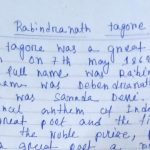 Rabindranath tagore
tagore was a great
on 7th may 186
full name was Rabin
name was Debendranat
was Sarada Devi.
nal anthem of Ind
great poet and the fi
the Noble prize, 
a great poet a